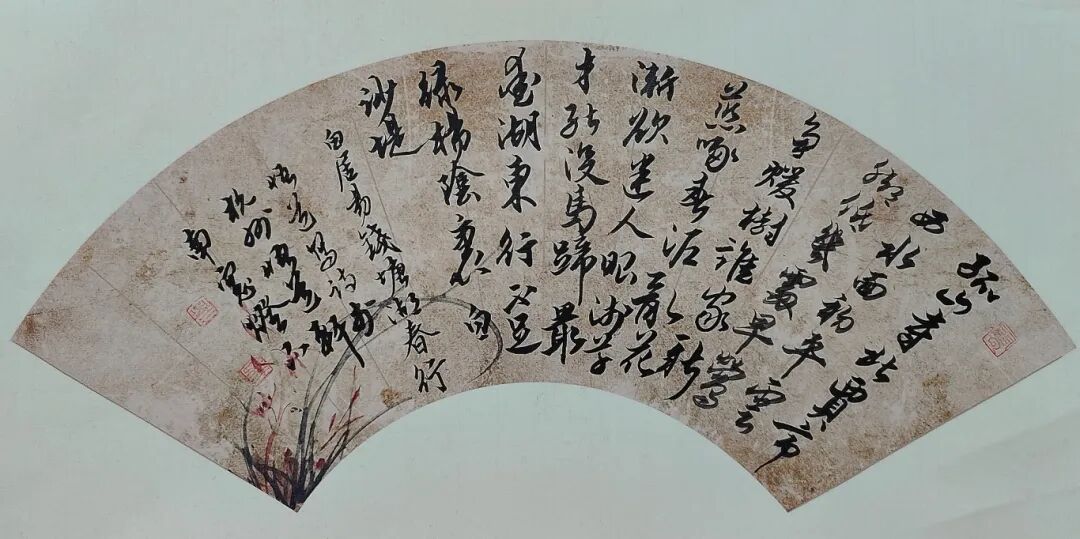 孤山寺北賈亭
西水面初平雲
腳低幾處早鶯
爭暖樹誰家新
燕啄春泥亂花
漸欲迷人眼淺草
才能沒馬蹄最
愛湖東行不足
綠楊陰裏白
沙堤
白居易錢塘湖春行
悟道寫詩於
杭州悟道軒
南窗燈下